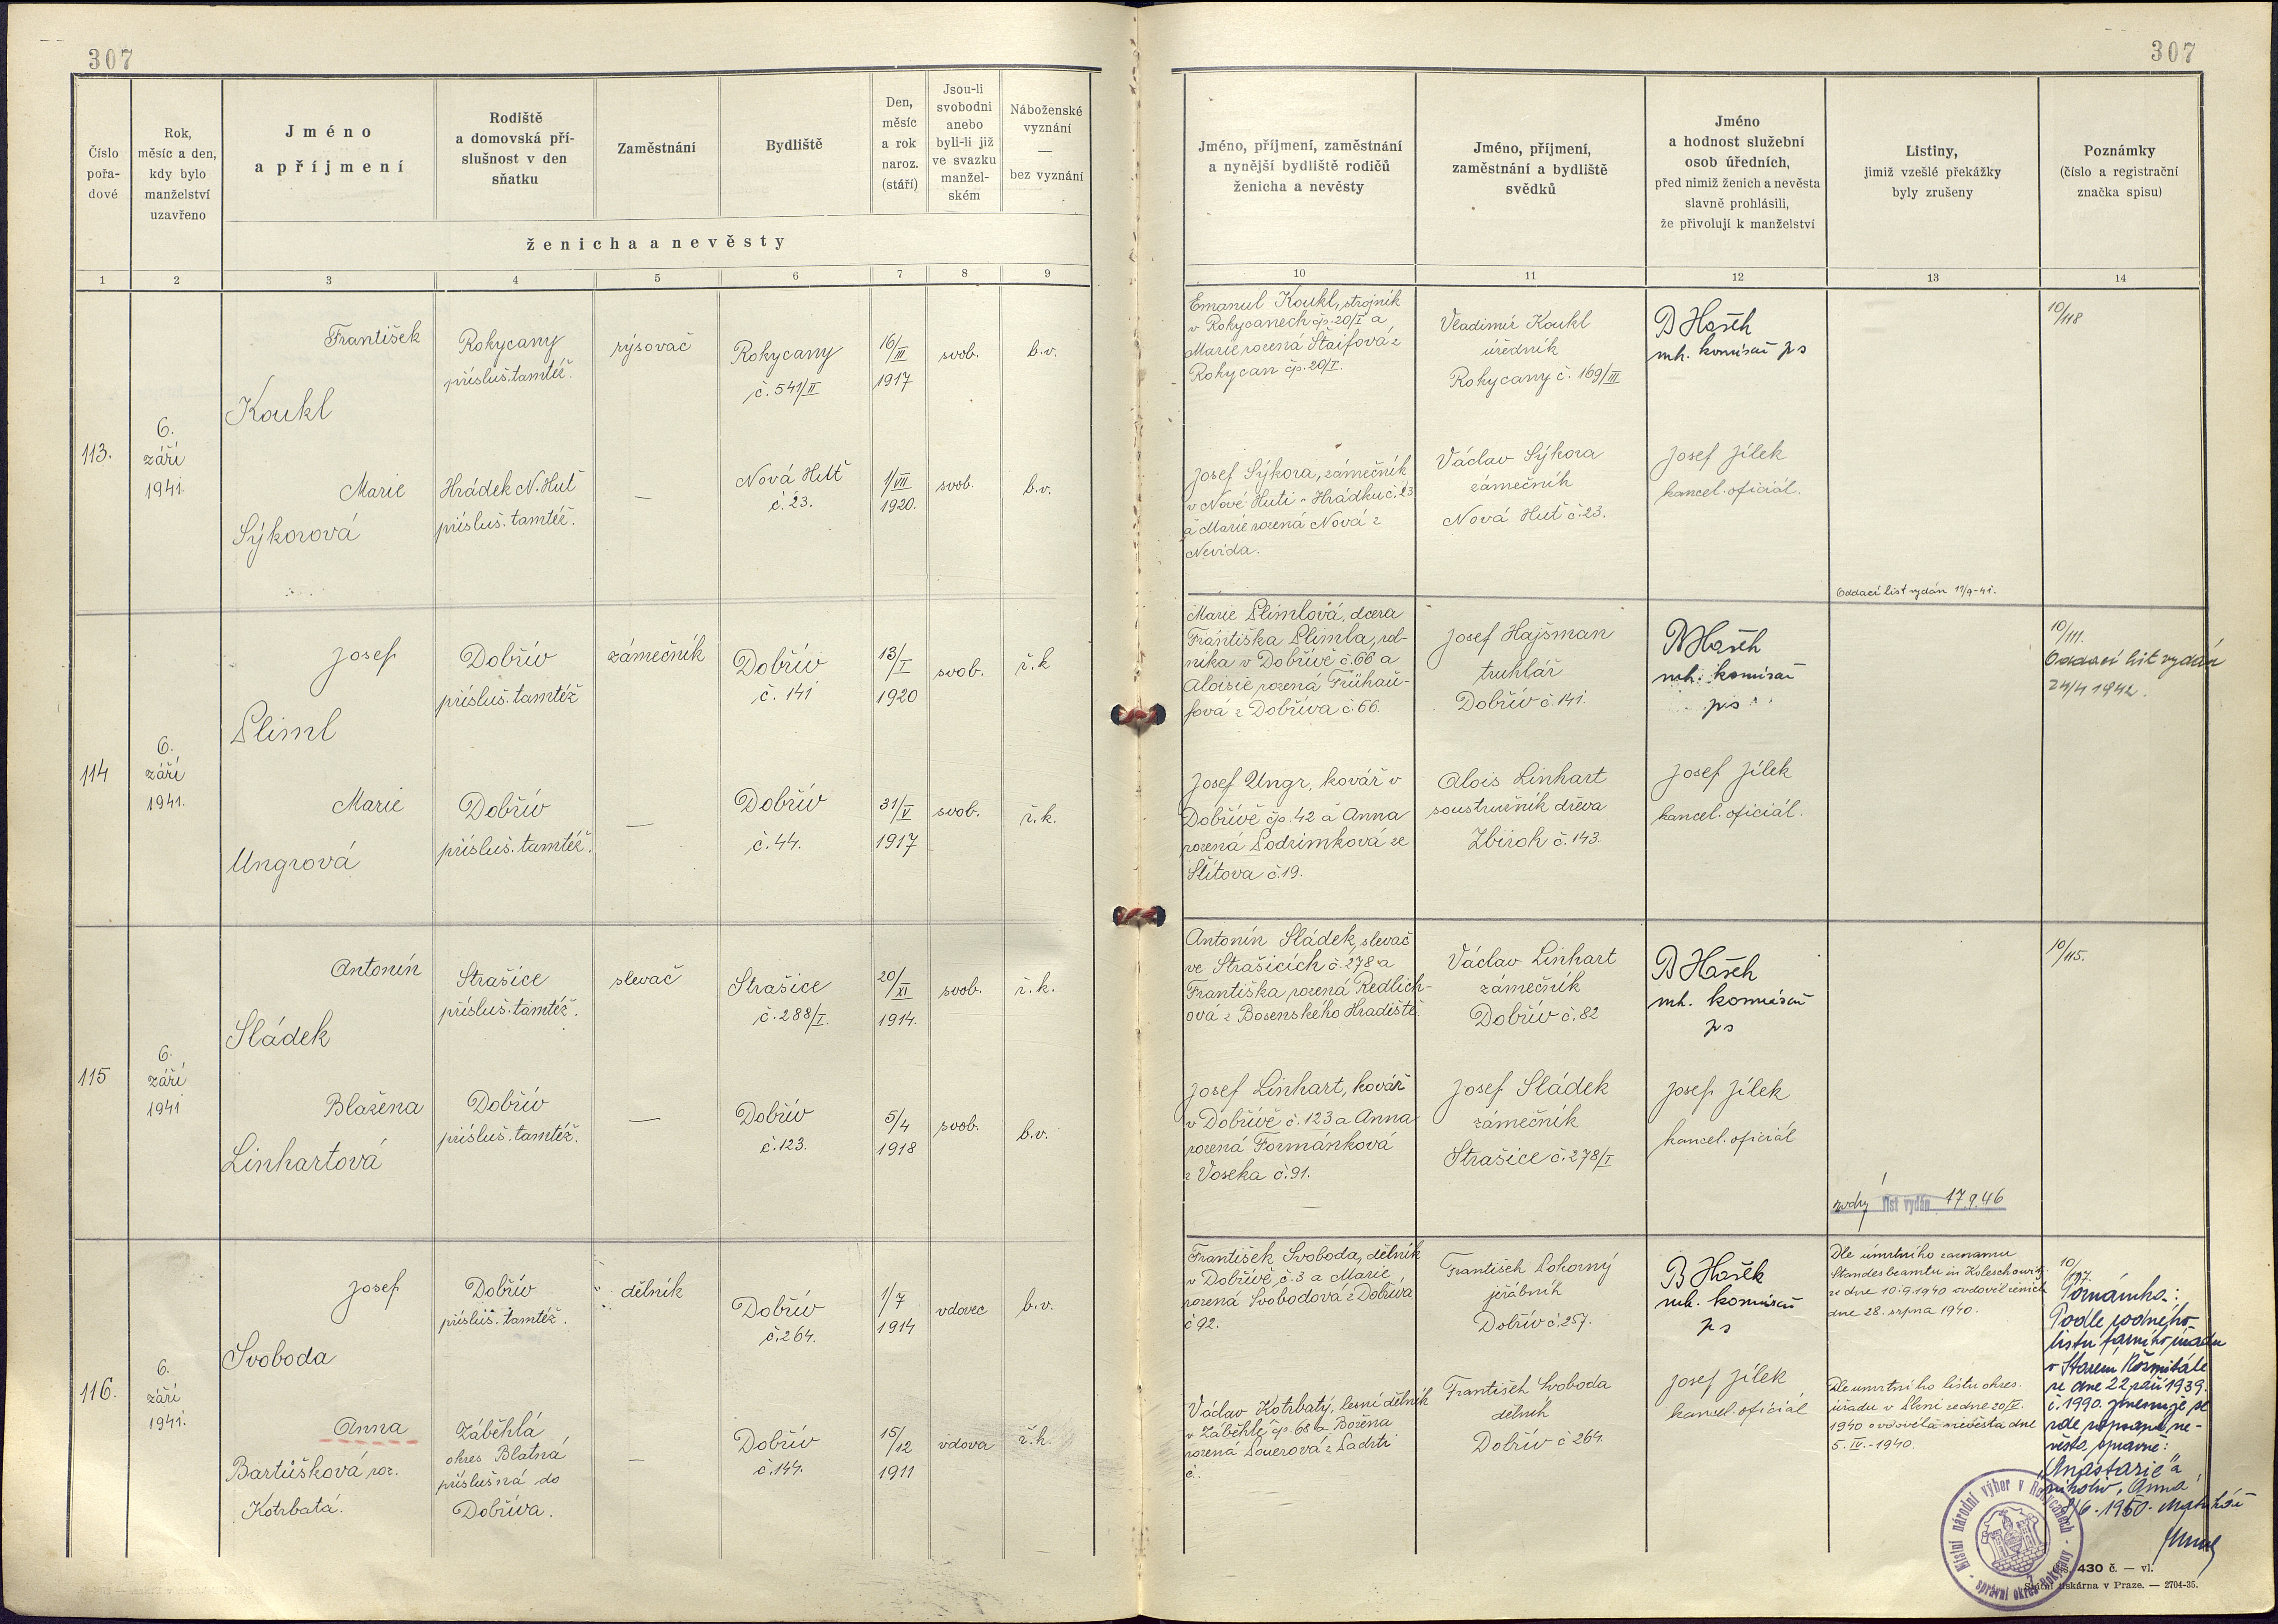 307
307
Číslo pořa-dové
Rok, měsíc a den, kdy bylo manželství uzavřeno
Jméno
a příjmení
Rodiště
a domovská pří-
slušnost v den
sňatku
Zaměstnání
Bydliště
Den,
měsíc
a rok
naroz.
(stáří)
Jsou-li
svobodni
anebo
byli-li již
ve svazku
manžel-
ském
Náboženské
vyznání
—
bez vyznání
ženicha a nevěsty
Jméno, příjmení, zaměstnání
a nynější bydliště rodičů
ženicha a nevěsty
Jméno, příjmení,
zaměstnání a bydliště
svědků
Jméno
a hodnost služební
osob úředních,
před nimiž ženich a nevěsta
slavně prohlásili,
že přivolují k manželství
Listiny,
jimiž vzešlé překážky
byly zrušeny
Poznámky
(číslo a registrační
značka spisu)
1 2 3 4 5 6 7 8 9 10 11 12 13 14
113.
6.
září
1941.
František
Koukl
Rokycany
přísluš. tamtéž.
rýsovač
Rokycany
č. 541/II
16/III
1917
svob.
b.v.
Marie
Sýkorová
Hrádek N. Huť
přísluš. tamtéž.
—
Nová Huť
č. 23.
1/VII
1920.
svob.
b.v.
Emanuel Koukl, strojník
v Rokycanech čp. 20/I a
Marie rozená Štaifová z
Rokycan čp. 20/I.
Josef Sýkora, zámečník
v Nové Huti - Hrádku č. 23
a Marie rozená Nová z
Nevida.
Vladimír Koukl
úředník
Rokycany č. 169/III
Václav Sýkora
zámečník
Nová Huť č. 23.
B Hašek
mh. komisař
Josef Jílek
kancel. oficiál.
Oddací list vydán 11/9-41.
10/118
114
6.
září
1941.
Josef
Sliml
Dobřív
přísluš. tamtéž
zámečník
Dobřív
č. 141
13/I
1920
svob.
ř.k
Marie
Ungrová
Dobřív
přísluš. tamtéž.
—
Dobřív
č. 44.
31/V
1917
svob.
ř.k.
Marie Slimlová, dcera
Františka Slimla, rol-
níka v Dobřívě č. 66 a
Aloisie rozená Frühau-
fová z Dobříva č. 66.
Josef Ungr, kovář v
Dobřívě čp. 42 a Anna
rozená Podzimková ze
Štítova č. 19.
Josef Hajšman
truhlář
Dobřív č. 141.
Alois Linhart
soustružník dřeva
Zbiroh č. 143.
B Hašek
mh. komisař
Josef Jílek
kancel. oficiál.
10/111.
Oddací list vydán
24/4 1942.
115
6.
září
1941
Antonín
Sládek
Strašice
přísluš. tamtéž.
slevač
Strašice
č. 288/I.
20/XI
1914.
svob.
ř.k.
Blažena
Linhartová
Dobřív
přísluš. tamtéž.
—
Dobřív
č. 123.
5/4
1918
svob.
b.v.
Antonín Sládek, slevač
ve Strašicích č. 278 a
Františka rozená Redlich-
ová z Bosenského Hradiště.
Josef Linhart, kovář
v Dobřívě č. 123 a Anna
rozená Formánková
z Voseka č. 91.
Václav Linhart
zámečník
Dobřív č. 82
Josef Sládek
zámečník
Strašice č. 278/I
B Hašek
mh. komisař
Josef Jílek
kancel. oficiál
list vydán 17.9.46
10/115.
116.
6.
září
1941.
Josef
Svoboda
Dobřív
přísluš. tamtéž.
dělník
Dobřív
č. 264.
1/7
1914
vdovec
b.v.
Anna
Bartůšková roz.
Kotrbatá.
Záběhlá
okres Blatná
příslušná do
Dobříva.
—
Dobřív
č. 144.
15/12
1911
vdova
ř.k.
František Svoboda, dělník
v Dobřívě, č. 3 a Marie
rozená Svobodová z Dobříva
č 92.
Václav Kotrbatý, lesní dělník
v Záběhlé čp. 68 a Božena
rozená Louerová z Padrti
č.
František Pokorný
jeřábník
Dobřív č. 257.
František Svoboda
dělník
Dobřív č 264.
B Hašek
mh. komisař
Josef Jílek
kancel. oficiál
Dle úmrtního záznamu
Standesbeamtu in Koleschowitz
ze dne 10.9.1940 ovdověl ženich
dne 28. srpna 1940.
Dle úmrtního listu okres.
úřadu v Plzni ze dne 20/IV.
1940 ovdověla nevěsta dne
5. IV. - 1940.
10/117.
Poznámka:
Podle rodného
listu farního úřadu
v Starém Rožmitále
ze dne 22 září 1939.
č. 1990. jmenuje se
zde zapsaná ne-
věsta správně:
„Anastazie" a
nikoliv „Anna"
1/6. 1950.
Místní národní výbor v Rokycanech - správní okres Rokycany -
430 č. — vl.
Státní tiskárna v Praze. — 2704-35.